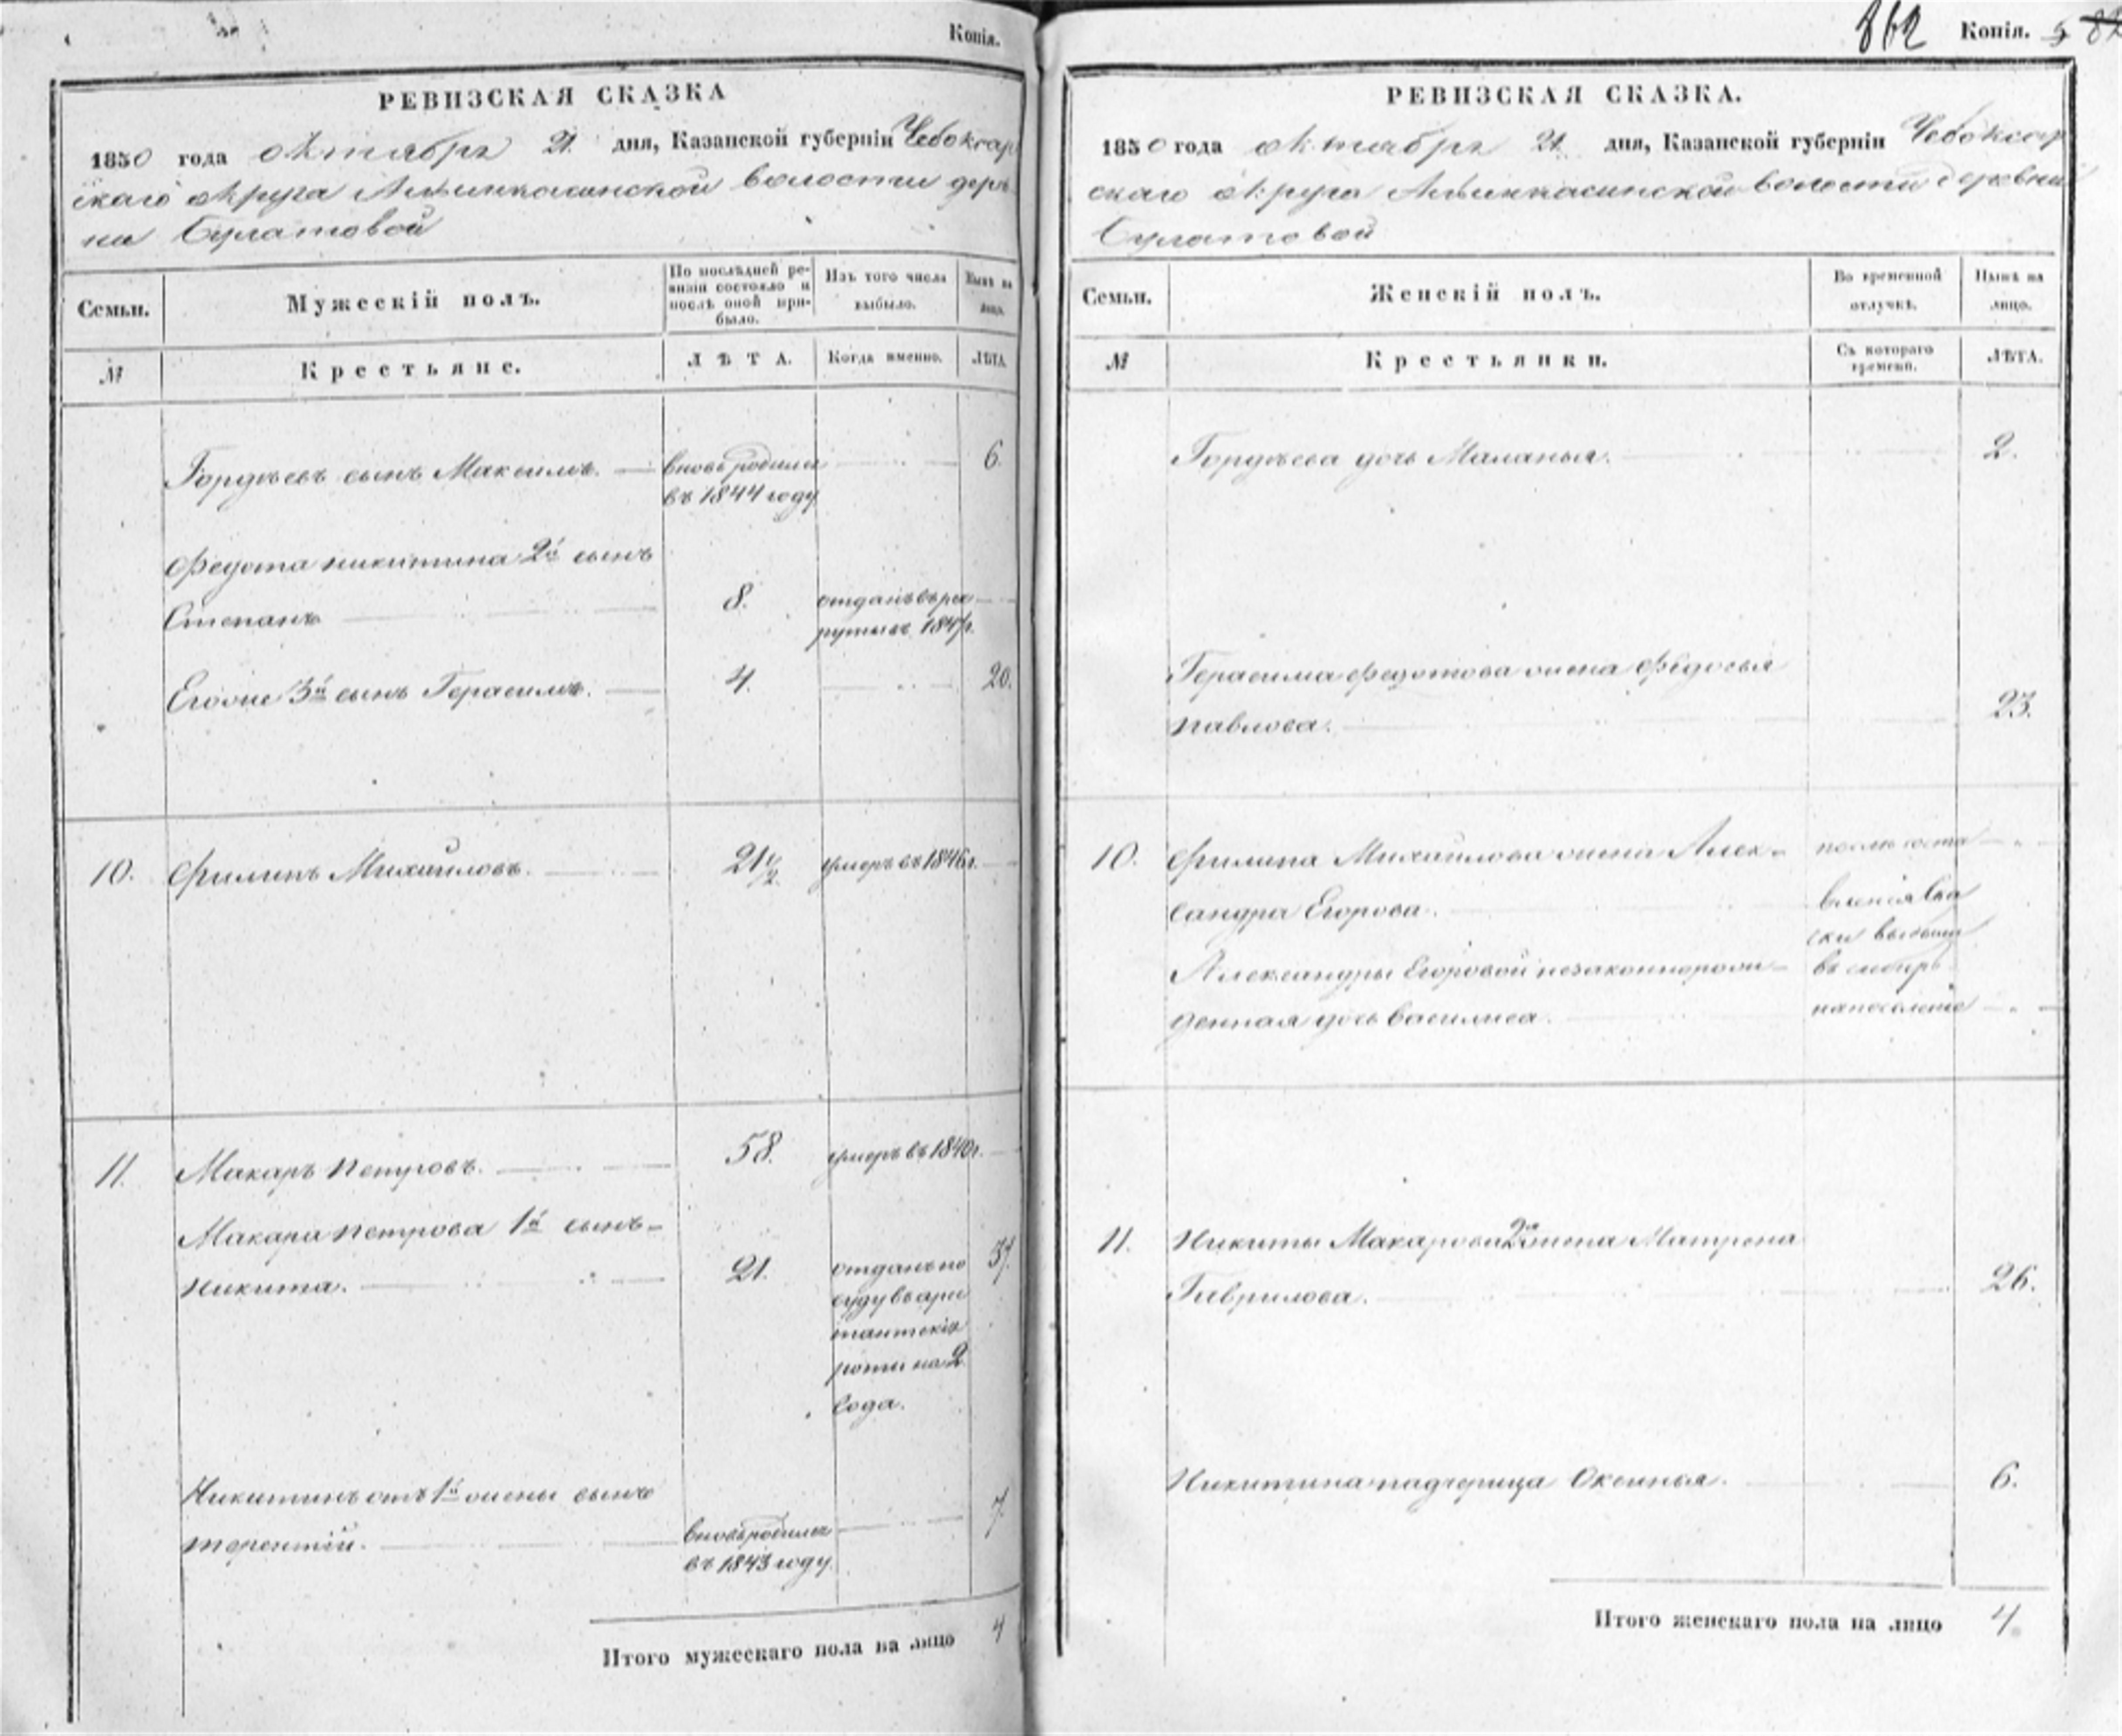 Копія.
РЕВИЗСКАЯ СКАЗКА
1850 года октября 21 дня, Казанской губерніи Чебоксар
скаго округа волости дерев
ни Булатовой
Семьи.
Мужескій полъ.
По послѣдней ре-
визіи состояло и
послѣ оной при-
было.
Изъ того числа
выбыло.
Нынѣ на
лицо.
№
Крестьяне.
ЛѢТА.
Когда именно.
ЛѢТА.
Гордѣевъ сынъ Максимъ. вновь родился 6.
въ 1844 году
Федота Никитина 2й сынъ
Степанъ 8. отданъ въ рек
руты въ 1847г.
Егоже 3й сынъ Герасимъ. 4. 20.
10. Филипъ Михайловъ. 21½ умеръ въ 1846г.
11. Макаръ Петровъ. 58. умеръ въ 1840г.
Макара Петрова 1й сынъ
Никита. 21. отданъ по 37.
суду въ аре
стантскія
роты на 2
года.
Никитинъ отъ 1й жены сынъ
Терентій. вновь родился 7.
въ 1843 году.
Итого мужескаго пола на лицо 4
862 Копія. 5 82
РЕВИЗСКАЯ СКАЗКА.
1850 года октября 21 дня, Казанской губерніи Чебоксар
скаго округа волости деревни
Булатовой
Семьи.
Женскій полъ.
Во временной
отлучкѣ.
Нынѣ на
лицо.
№
Крестьянки.
Съ котораго
времени.
ЛѢТА.
Гордѣева дочь Маланья. 2.
Герасима Федотова жена Федосья
Павлова. 23.
10. Филипа Михайлова жена Алек- послѣ соста
сандра Егорова. вленія ска
ски выбыли
Александры Егоровой незаконнорож- въ сибирь
денная дочь Василиса. на поселеніе
11. Никиты Макарова 2я жена Матрена
Гаврилова. 26.
Никитина падчерица Оксинья. 6.
Итого женскаго пола на лицо 4.